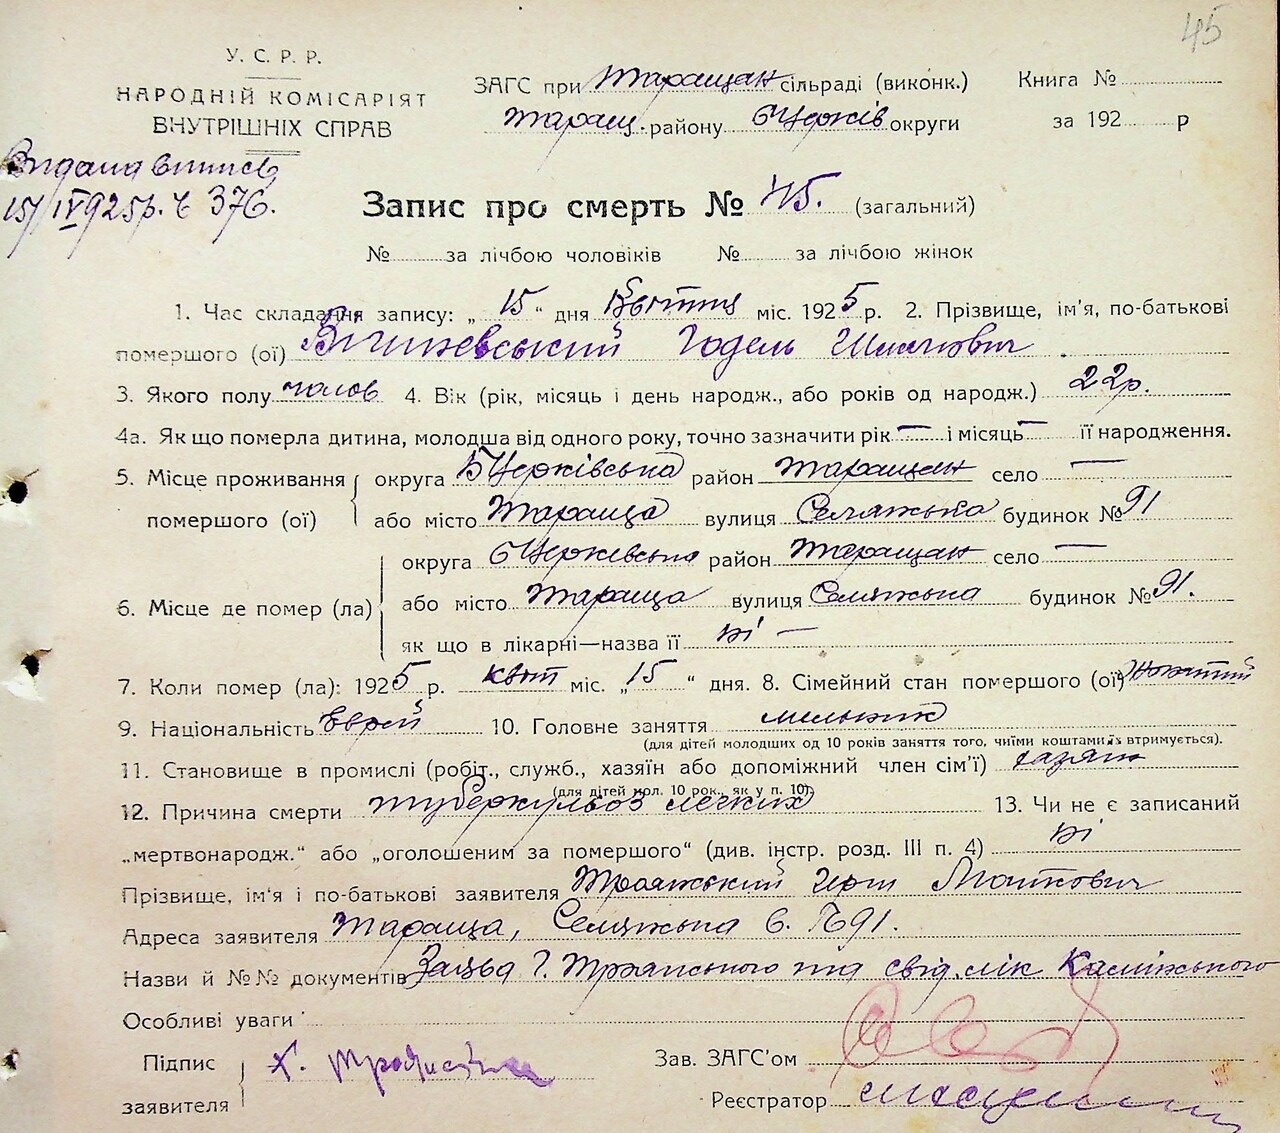 45
У. С. Р. Р.
НАРОДНІЙ КОМІСАРІЯТ
ВНУТРІШНІХ СПРАВ
ЗАГС при Таращан сільраді (виконк.) Книга №
Таращ. району БЦерків округи за 192 р
Видана виписъ
15/IV 925р. № 376.
Запис про смерть № 45. (загальний)
№ за лічбою чоловіків № за лічбою жінок
1. Час складання запису: „ 15 “ дня Квітня міс. 1925 р. 2. Прізвище, ім'я, по-батькові
помершого (ої) Годель
3. Якого полу чолов 4. Вік (рік, місяць і день народж., або років од народж.) 22р.
4а. Як що померла дитина, молодша від одного року, точно зазначити рік — і місяць — її народження.
5. Місце проживання округа БЦерківська район Таращан село —
помершого (ої) або місто Тараща вулиця будинок № 91
округа БЦерківська район Таращан село —
6. Місце де помер (ла) або місто Тараща вулиця будинок № 91.
як що в лікарні—назва її ні —
7. Коли помер (ла): 1925 р. квіт міс. „ 15 “ дня. 8. Сімейний стан помершого (ої) жонатий
9. Національність Еврей 10. Головне заняття мельник
(для дітей молодших од 10 років заняття того, чиїми коштами їх втримується).
11. Становище в промислі (робіт., служб., хазяїн або допоміжний член сім'ї) хазяїн
(для дітей мол. 10 рок., як у п. 10).
12. Причина смерти туберкульоз легких 13. Чи не є записаний
„мертвонародж.“ або „оголошеним за помершого“ (див. інстр. розд. III п. 4) ні
Прізвище, ім'я і по-батькові заявителя Мошкович
Адреса заявителя Тараща, в. № 91.
Назви й №№ документів Заява Г. під свід. лік Камінського
Особливі уваги
Підпис Зав. ЗАГС'ом
заявителя Реєстратор